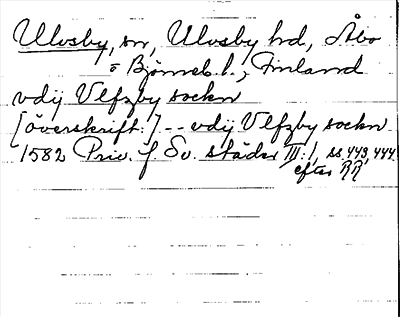 Ulvsby, sn, Ulvsby hd, Åbo
o Björneb. l., Finland
vdij Vlfzby sockn
[överskrift:] -- vdij Vlfzby sockn
1582 Priv. f. Sv. städer III:1, ss. 443, 444
efter RR